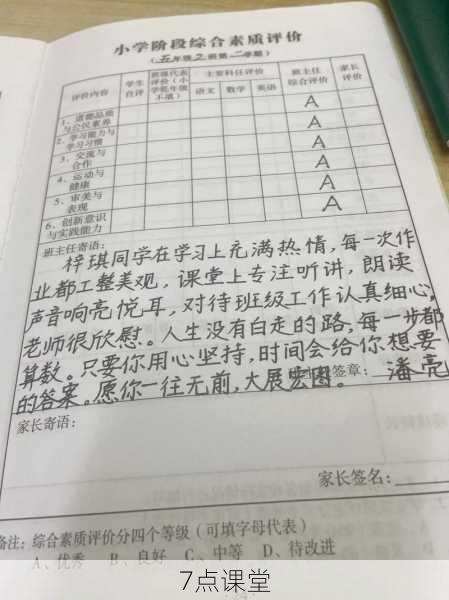 小学阶段综合素质评价
(五年级2班第二学期)
评价内容 学生自评 班级代表评价(小学低年级不填) 主要科任评价 班主任综合评价 家长评价
语文 数学 英语
1、道德品质与公民素养 A
2、学习能力与学习习惯 A
3、交流与合作 A
4、运动与健康 A
5、审美与表现 A
6、创新意识与实践能力
班主任寄语:
梓琪同学在学习上充满热情,每一次作
业都工整美观,课堂上专注听讲,朗读
声音响亮悦耳,对待班级工作认真细心,
老师很欣慰。人生没有白走的路,每一步都
算数。只要你用心坚持,时间会给你想要
的答案。愿你一往无前,大展宏图。 签章:潘亮
家长寄语:
家长签名:
备注:综合素质评价分四个等级(可填字母代表)
A、优秀 B、良好 C、中等 D、待改进
7点课堂